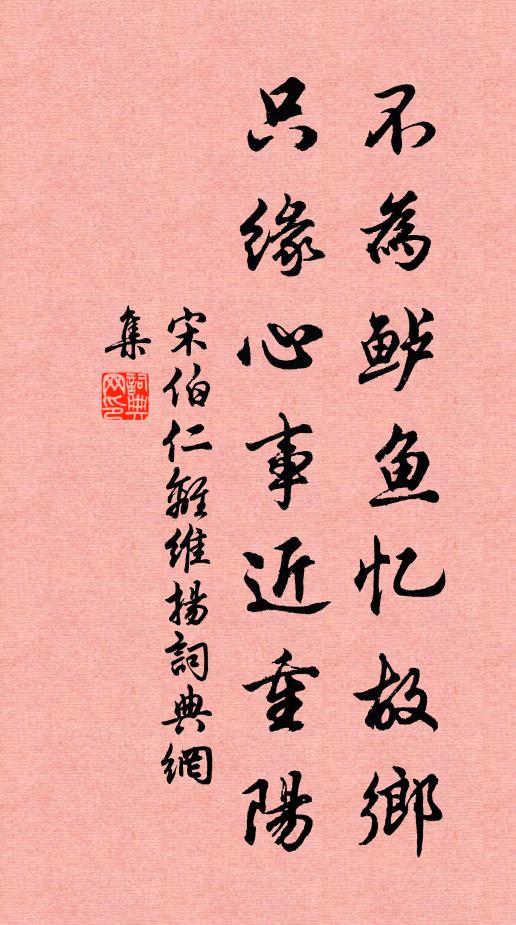 不為鲈鱼忆故鄉
只緣心事近重陽
宋伯仁離維揚詞典網
集
詞典网印